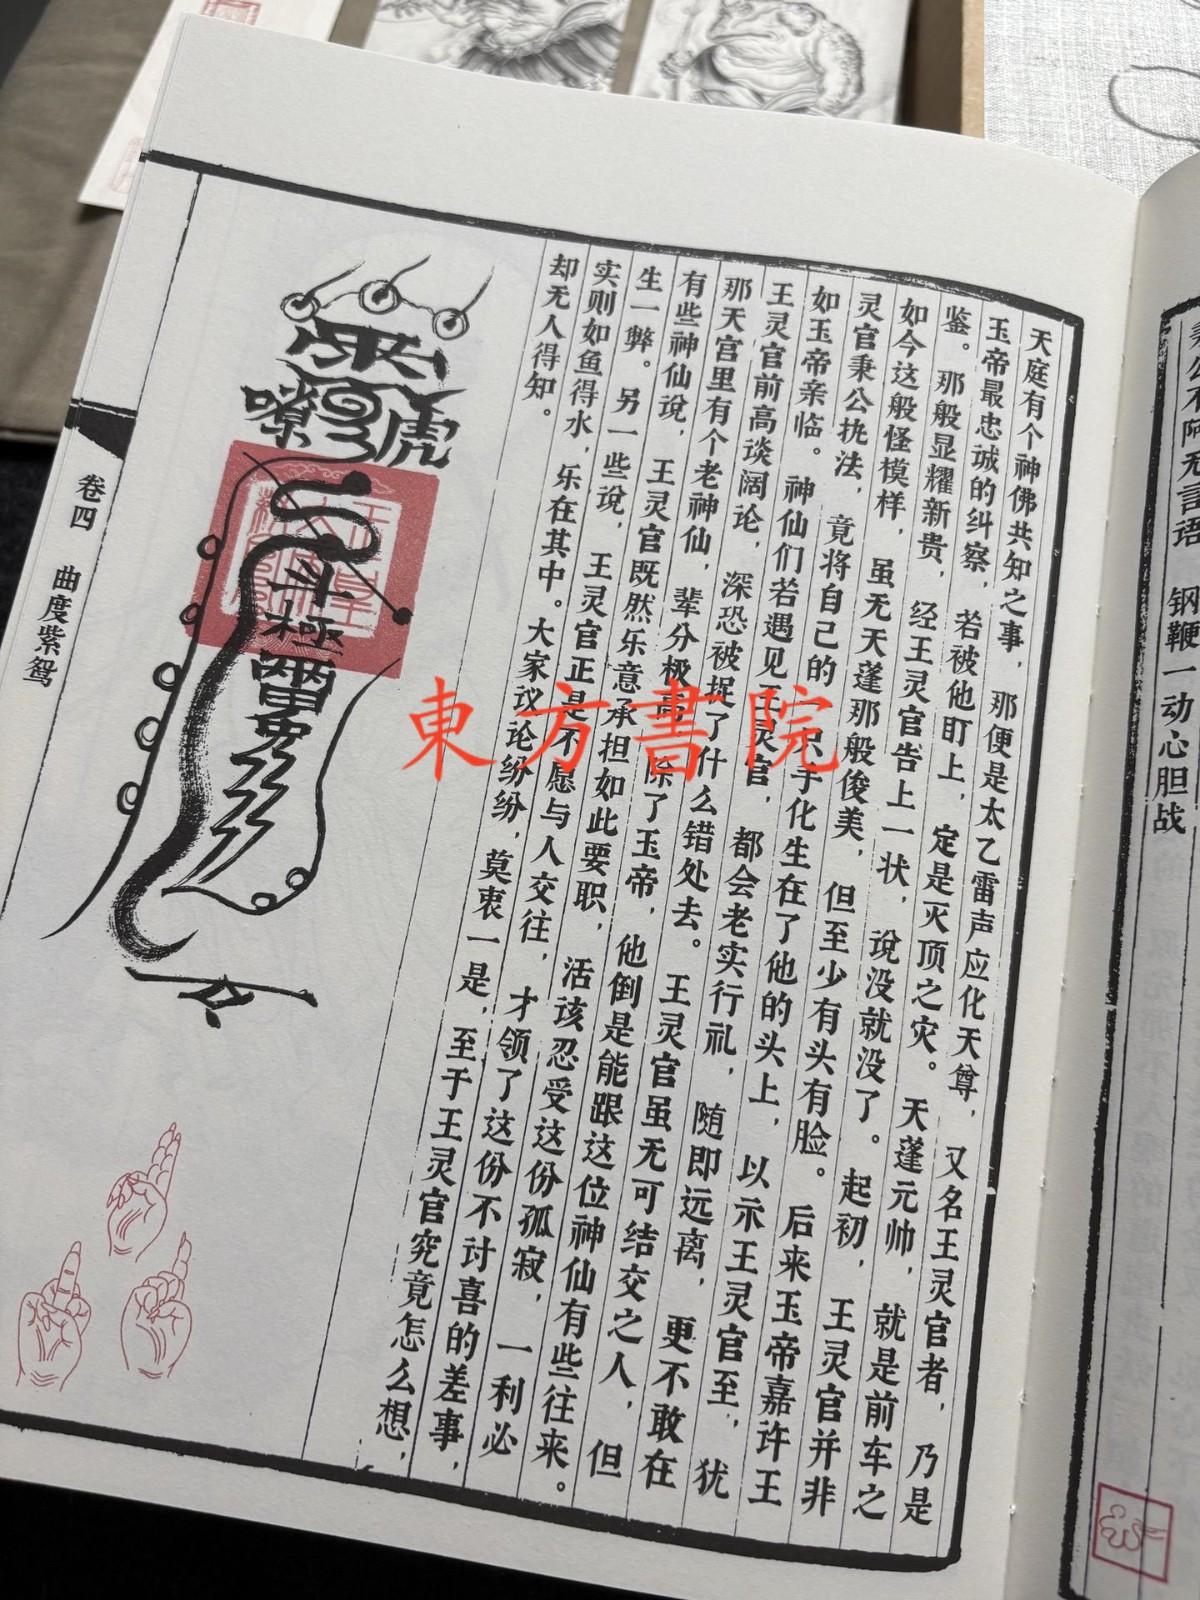 公不阿无言语　钢鞭一动心胆战
天庭有个神佛共知之事，那便是太乙雷声应化天尊，又名王灵官者，乃是
玉帝最忠诚的纠察，若被他盯上，定是灭顶之灾。天蓬元帅，就是前车之
鉴。那般显耀新贵，经王灵官告上一状，说没就没了。起初，王灵官并非
如今这般怪模样，虽无天蓬那般俊美，但至少有头有脸。后来玉帝嘉许王
灵官秉公执法，竟将自己的一只手化生在了他的头上，以示王灵官至，犹
如玉帝亲临。神仙们若遇见王灵官，都会老实行礼，随即远离，更不敢在
王灵官前高谈阔论，深恐被捉了什么错处去。王灵官虽无可结交之人，但
那天宫里有个老神仙，辈分极高，除了玉帝，他倒是能跟这位神仙有些往来。
有些神仙说，王灵官既然乐意承担如此要职，活该忍受这份孤寂，一利必
生一弊。另一些说，王灵官正是不愿与人交往，才领了这份不讨喜的差事，
实则如鱼得水，乐在其中。大家议论纷纷，莫衷一是，至于王灵官究竟怎么想，
却无人得知。
卷四　曲度紫鸳
東方書院